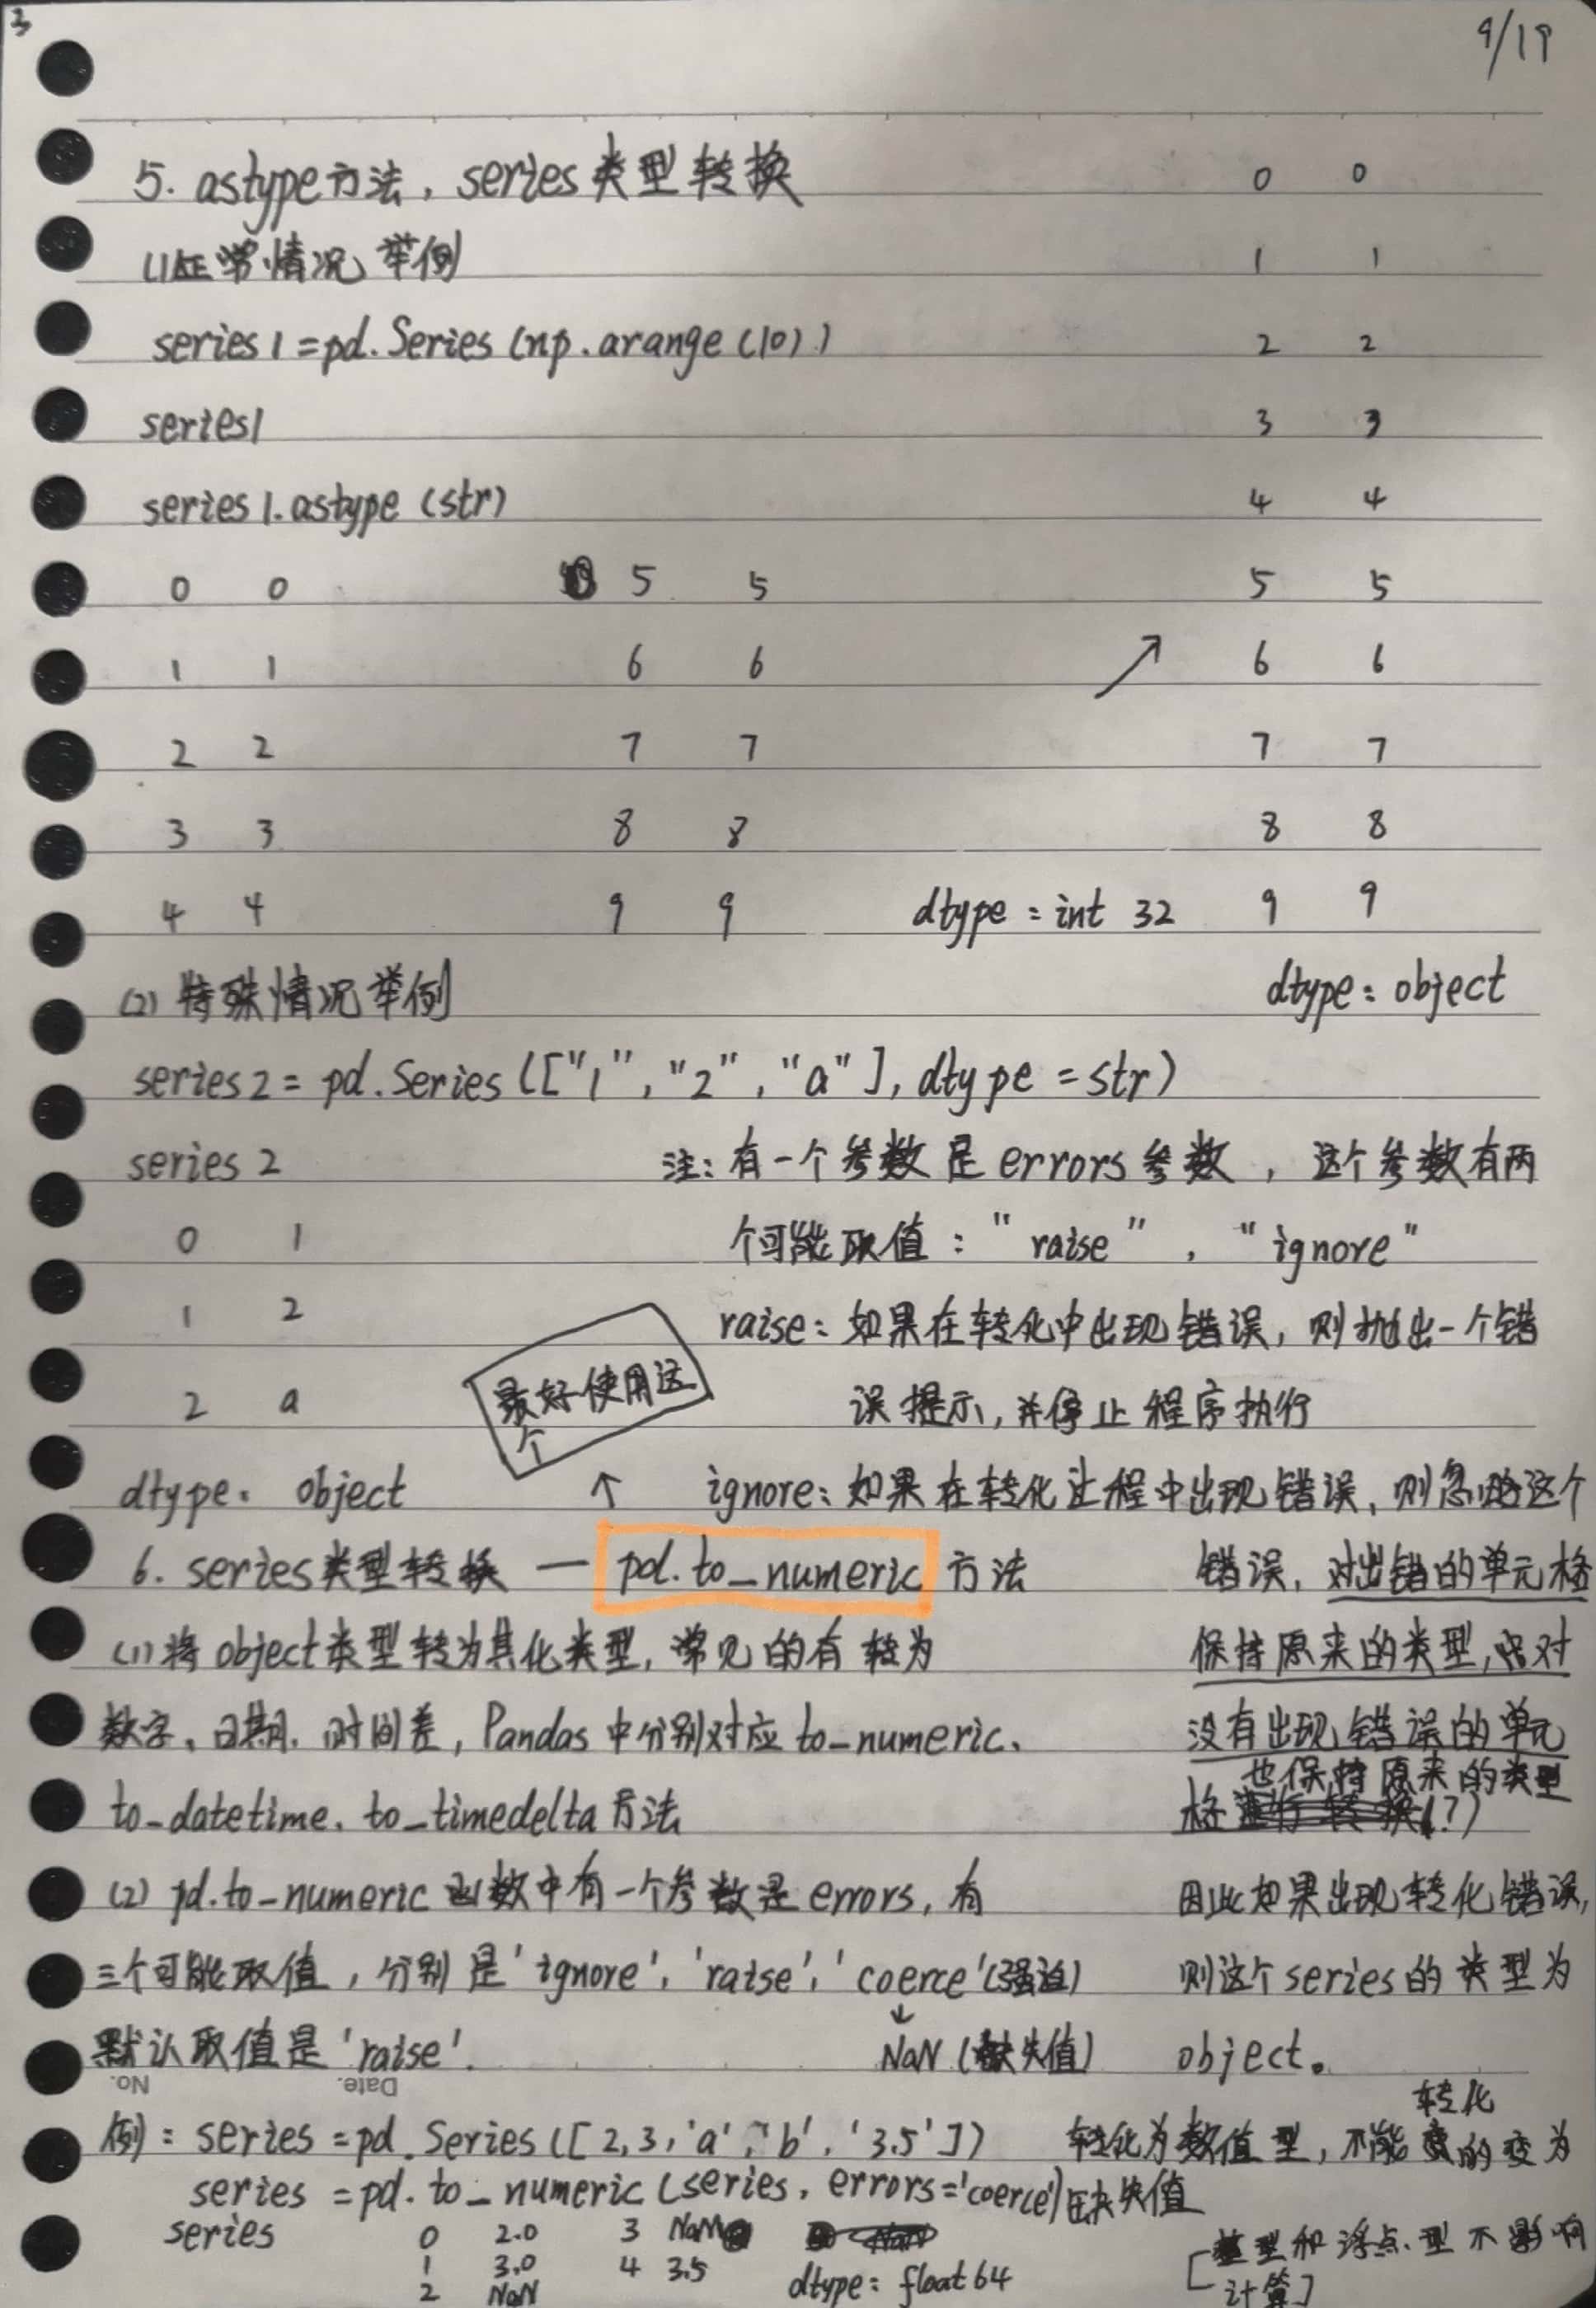 3
9/19
5. astype方法，series类型转换
(1)正常情况举例
series1=pd.Series(np.arange(10))
series1
series1.astype(str)
0 0
1 1
2 2
3 3
4 4
5 5
6 6
7 7
8 8
9 9
dtype:int 32
0 0
1 1
2 2
3 3
4 4
5 5
6 6
7 7
8 8
9 9
dtype:object
(2)特殊情况举例
series2=pd.Series(["1","2","a"],dtype=str)
series2
0 1
1 2
2 a
dtype: object
注:有一个参数是errors参数，这个参数有两
个可能取值:"raise"，"ignore"
raise:如果在转化中出现错误，则抛出一个错
误提示，并停止程序执行
ignore:如果在转化过程中出现错误、则忽略这个
错误，对出错的单元格
保持原来的类型，对
没有出现错误的单元
也保持原来的类型
格(?)
因此如果出现转化错误，
则这个series的类型为
object。
最好使用这
个
↑
6. series类型转换 — pd.to_numeric 方法
(1)将object类型转为其化类型，常见的有转为
数字、日期、时间差，Pandas中分别对应to_numeric、
to_datetime、to_timedelta方法
(2) pd.to_numeric函数中有一个参数是errors，有
三个可能取值，分别是'ignore'，'raise'，'coerce'(强迫)
↓
默认取值是'raise'.
NaN (缺失值)
No.
Date.
例: series=pd.Series([2,3,'a','b','3.5'])
series=pd.to_numeric(series, errors='coerce')
series
0 2.0
1 3.0
2 NaN
3 NaN
4 3.5
dtype: float64
转化为数值型，不能转化的变为
缺失值
[整型和浮点型不影响
计算]